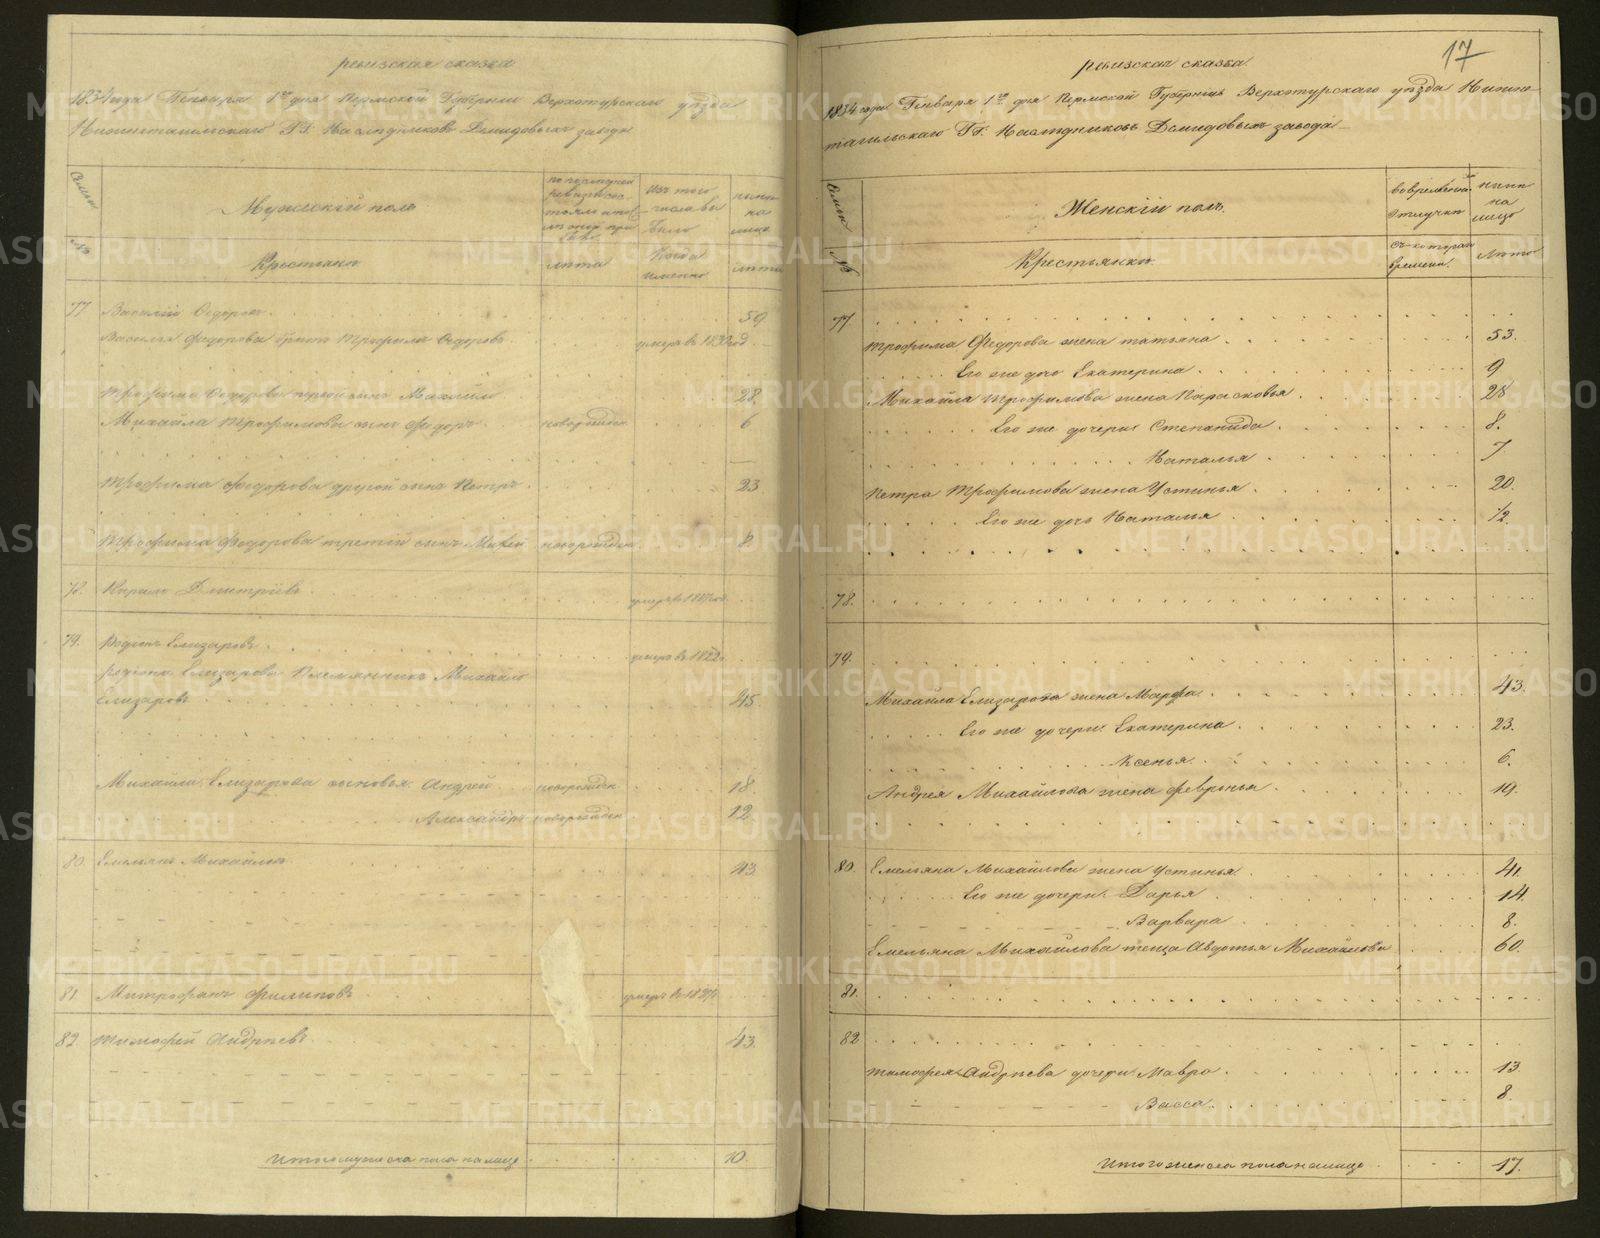 ревизская сказка
1834 года Генваря 1го дня Пермской Губернии Верхотурского уезда
Нижнетагильскаго ГГ. Наследниковъ Демидовыхъ завода
Семьи
№
Мужескiй полъ
Крестьяне
лета
Изъ того числа выбыло
Когда именно
ныне на лицо
лета
77 Василiй Федоровъ 59
Василья Федорова братъ Трофимъ Федоровъ умеръ въ
Трофима Федорова первой сынъ Михайло 28
Михайла Трофимова сынъ Федоръ новорожден 6
Трофима Федорова другой сынъ Петръ 23
Трофима Федорова третiй сынъ новорожден 8
78. Кирило Дмитрiевъ умеръ въ
79. Родiонъ Елизаровъ умеръ въ 1822
родiона Елизарова Племянникъ Михайло
Елизаровъ 45
Михайла Елизарова сыновья Андрей новорожден 18
Александръ новорожден 12
80. Емельянъ Михайловъ 43
81 Митрофанъ Филиповъ умеръ въ
82 Тимофей Андреевъ 43
Итого мужеска пола на лице 10.
17
ревизская сказка
1834 года Генваря 1го дня Пермской Губернiи Верхотурскаго уезда Нижне-
тагильскаго ГГ. Наследниковъ Демидовыхъ завода
Семьи
№
Женскiй полъ.
Крестьянки
во временной отлучке
съ котораго времени
ныне на лицо
Лета
77.
Трофима Федорова жена Татьяна 53.
Его же дочь Екатерина 9
Михайла Трофимова жена Парасковья 28
Его же дочери Степанида 8.
Наталья 7
Петра Трофимова жена Устинья 20.
Его же дочь Наталья 1/2.
78.
79.
Михайла Елизарова жена Марфа 43.
Его же дочери Екатерина 23.
Ксенья 6.
Андрея Михайлова жена Февронья 19.
80. Емельяна Михайлова жена Устинья 41.
Его же дочери Дарья 14.
Варвара 8.
Емельяна Михайлова теща Авдотья Михайлова 60.
81.
82
Тимофея Андреева дочери Мавра 13
Васса 8
Итого женска пола на лице 17.
METRIKI.GASO-URAL.RU